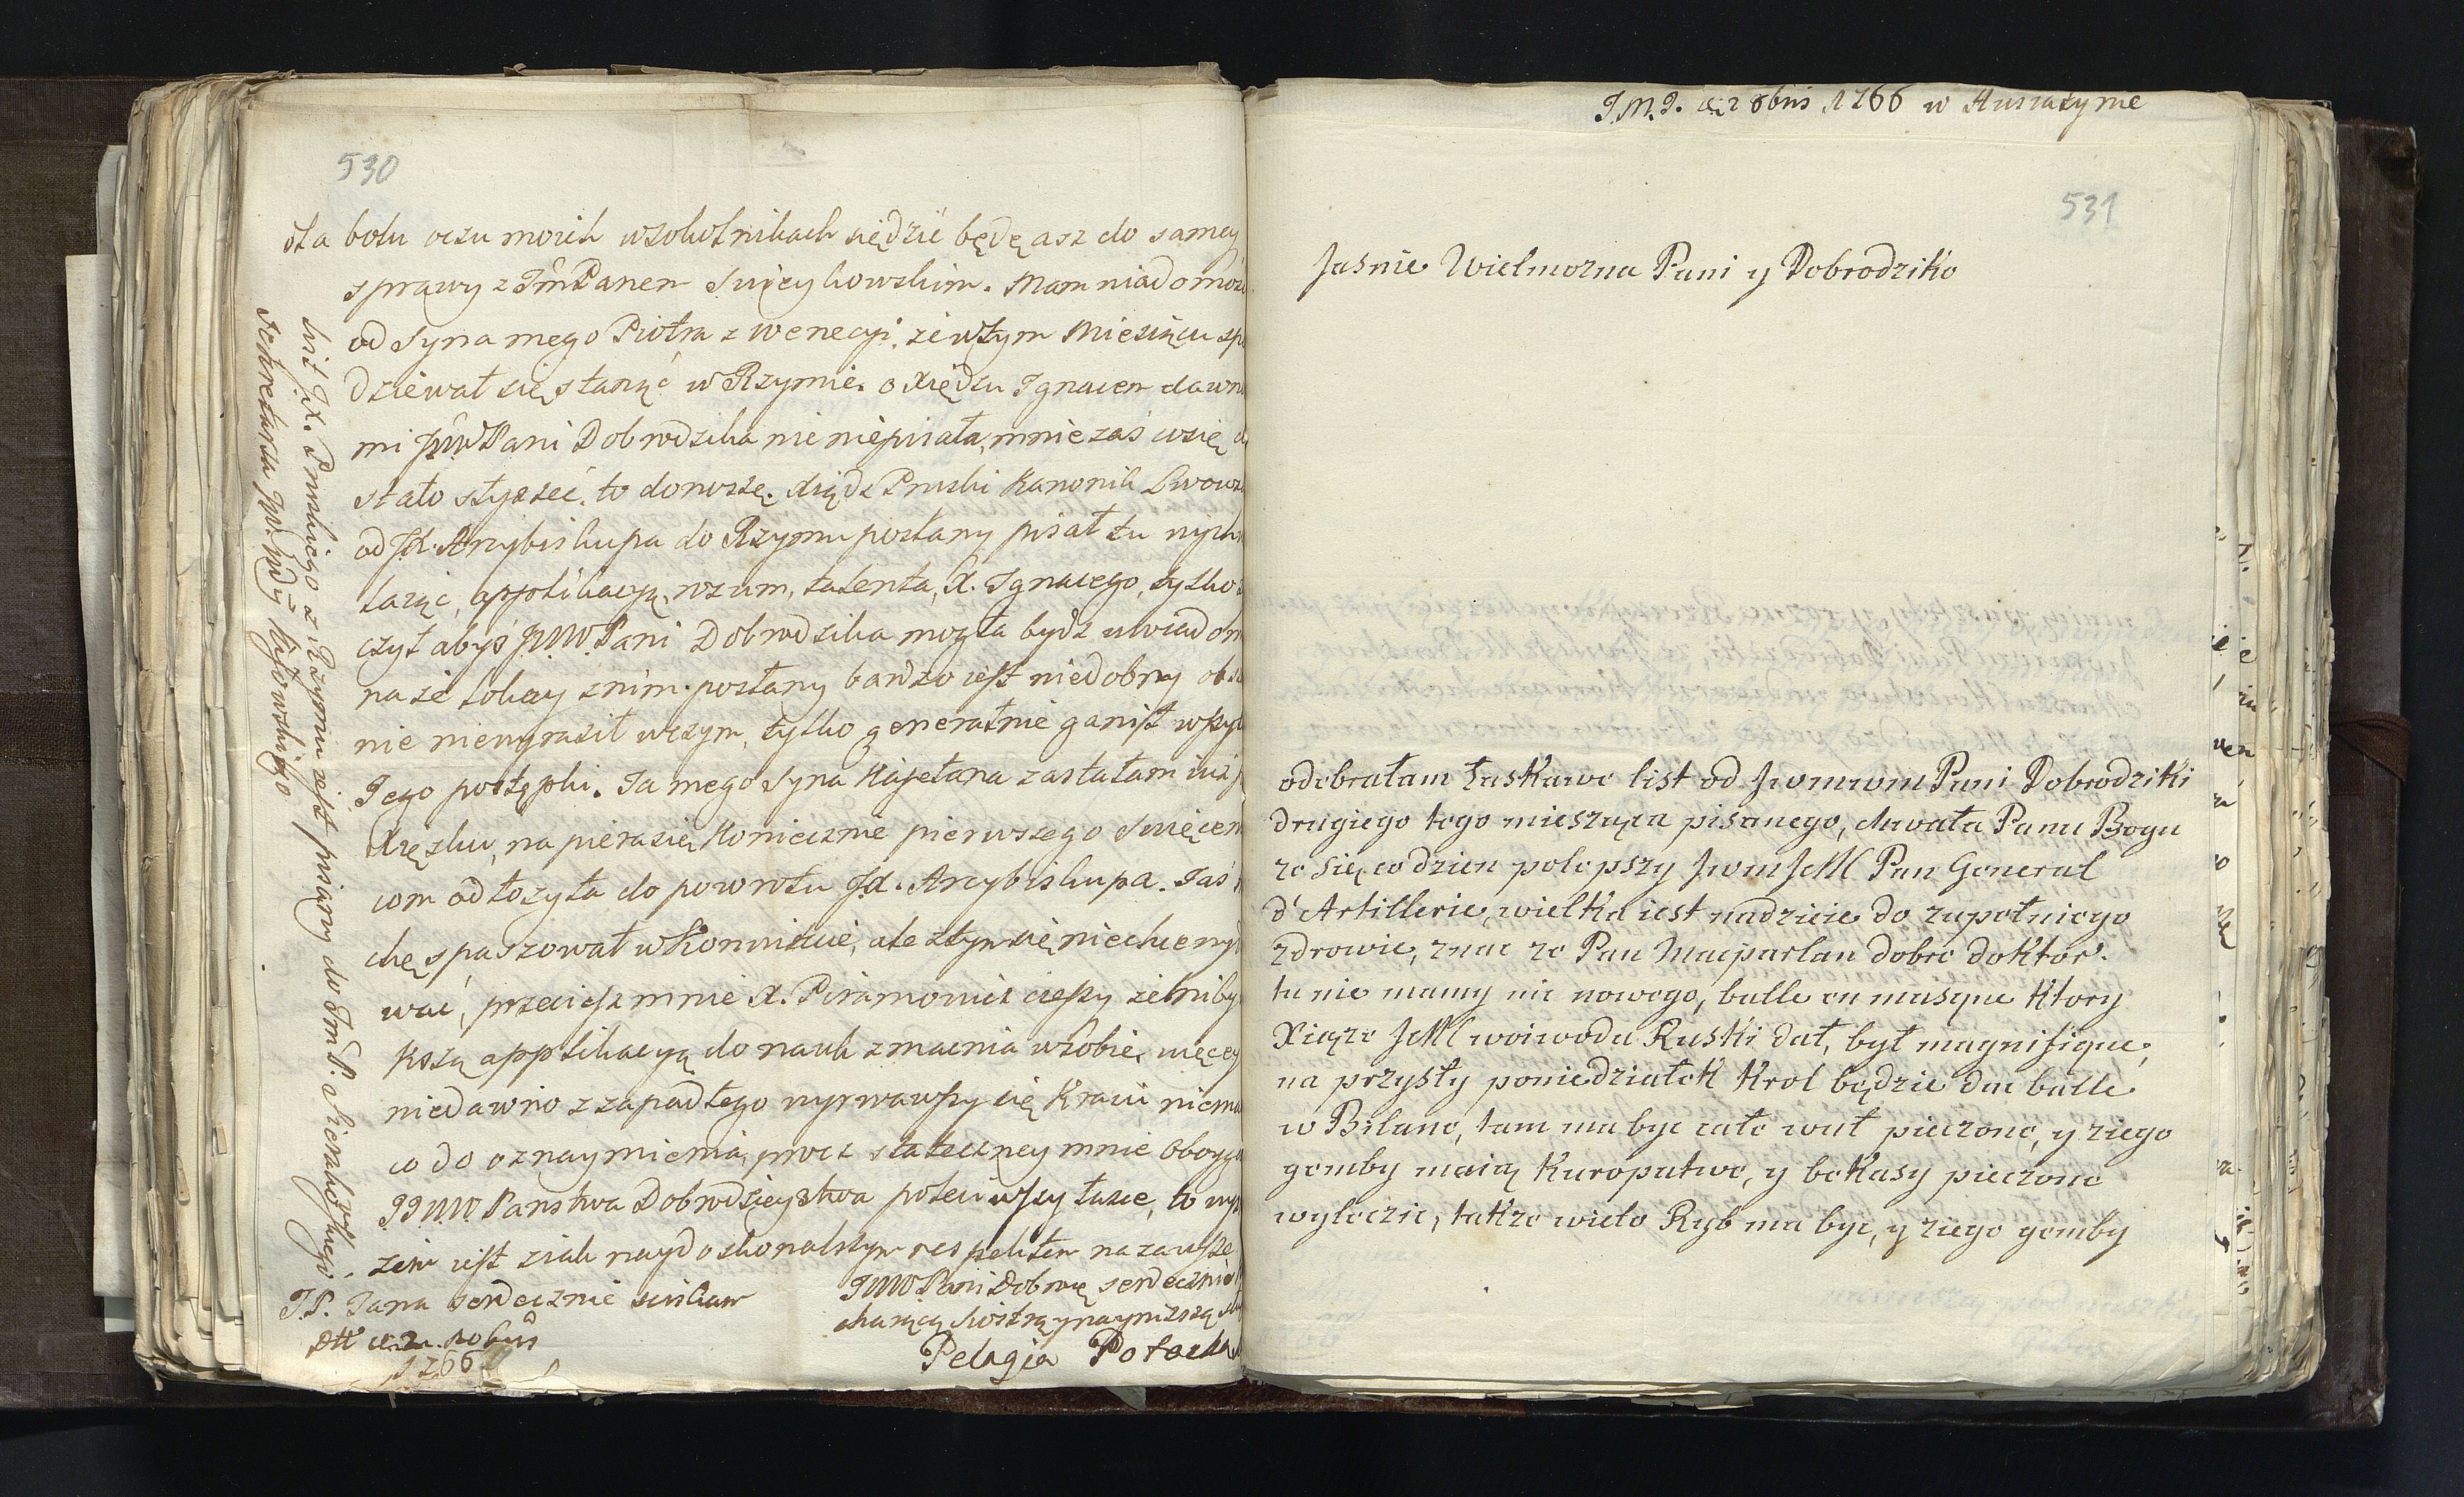 530
dla bolu oczu moich w sokolnikach siędzić będę asz do samey
sprawy z JmPanem Swięcykowskim. Mam wiadomość
od Syna mego Piotra z Wenecyi, ze w tym Miesiącu spo
dziewał się stanąć w Rzymie. o Xiędzu Ignacem dawno
mi JWWPani Dobrodzika nic niepisała, mnie zaś wsię
stało słyszeć, to donoszę. Xiądz Pruski Kanonik Lwowsk
od JX. Arcybiskupa do Rzymu posłany pisał tu wych
laiąc, applikacyą, rozum, talenta, X. Ignacego, tylko
czył abyś JWW.Pani Dobrodzika mogła bydz uwiadom
na ze lokay z nim posłany bardzo iest niedobry
nie niewyraził wczym, tylko generalnie ganił wszys
Jego postępki. Ja mego Syna Kajetana zastałam iuż
Xięzku, napierasię Koniecznie pierwszego Swięcen
com odłozyła do powrotu JX. Arcybiskupa. Jaś
chę spaszował w Konwikcie, ale z tym się niechce wy
wać, przeciesz mnie X. Piramowicz cieszy ze niby
kszą applikacyą do nauk zmacnia w sobie, więcey
niedawno z zapadłego wyrwawszy się Kraiu niema
co do oznaymienia, procz stateczney mnie oboyga
JJWW Panstwa Dobrodzieystwa poleciwszy łasce, to wy
zem iest ziak naydoskonalszym respektem na zawsze
JWWPani Dobrię serdecznie
chaiącą Siostrą y naynizszą
Pelagia Potocka
J.P. Jana serdecznie sciskam
1766
List JX. Pruskiego z Rzymu iest pisany do JmP. Nierzabowskiego
Sekretarza JW. Kijowskiego
J.M.J. 8bris 1766 w
531
Jasnie Wielmozna Pani y Dobrodziko
odebrałam łaskawe list od Jwmwm Pani Dobrodziki
drugiego tego miesząca pisanego, chwała Panu Bogu
ze się co dzien polepszy Jwm JcM Pan General
d'Artillerie, wielka iest nadzieie do zupołniego
zdrowie, znac ze Pan Macparlan dobre doktor.
tu nie mamy nic nowego, balle en masque ktory
Xiąze JcM woiwoda Ruski dał, był magnifique,
na przysły poniedziałek Krol będzie dac balle
w Bilane, tam ma byc całe wuł pieczone, y ziego
gemby maią Kuropatwe, y bekasy pieczone
wyleczie, takze wiele Ryb ma byc, y ziego gemby